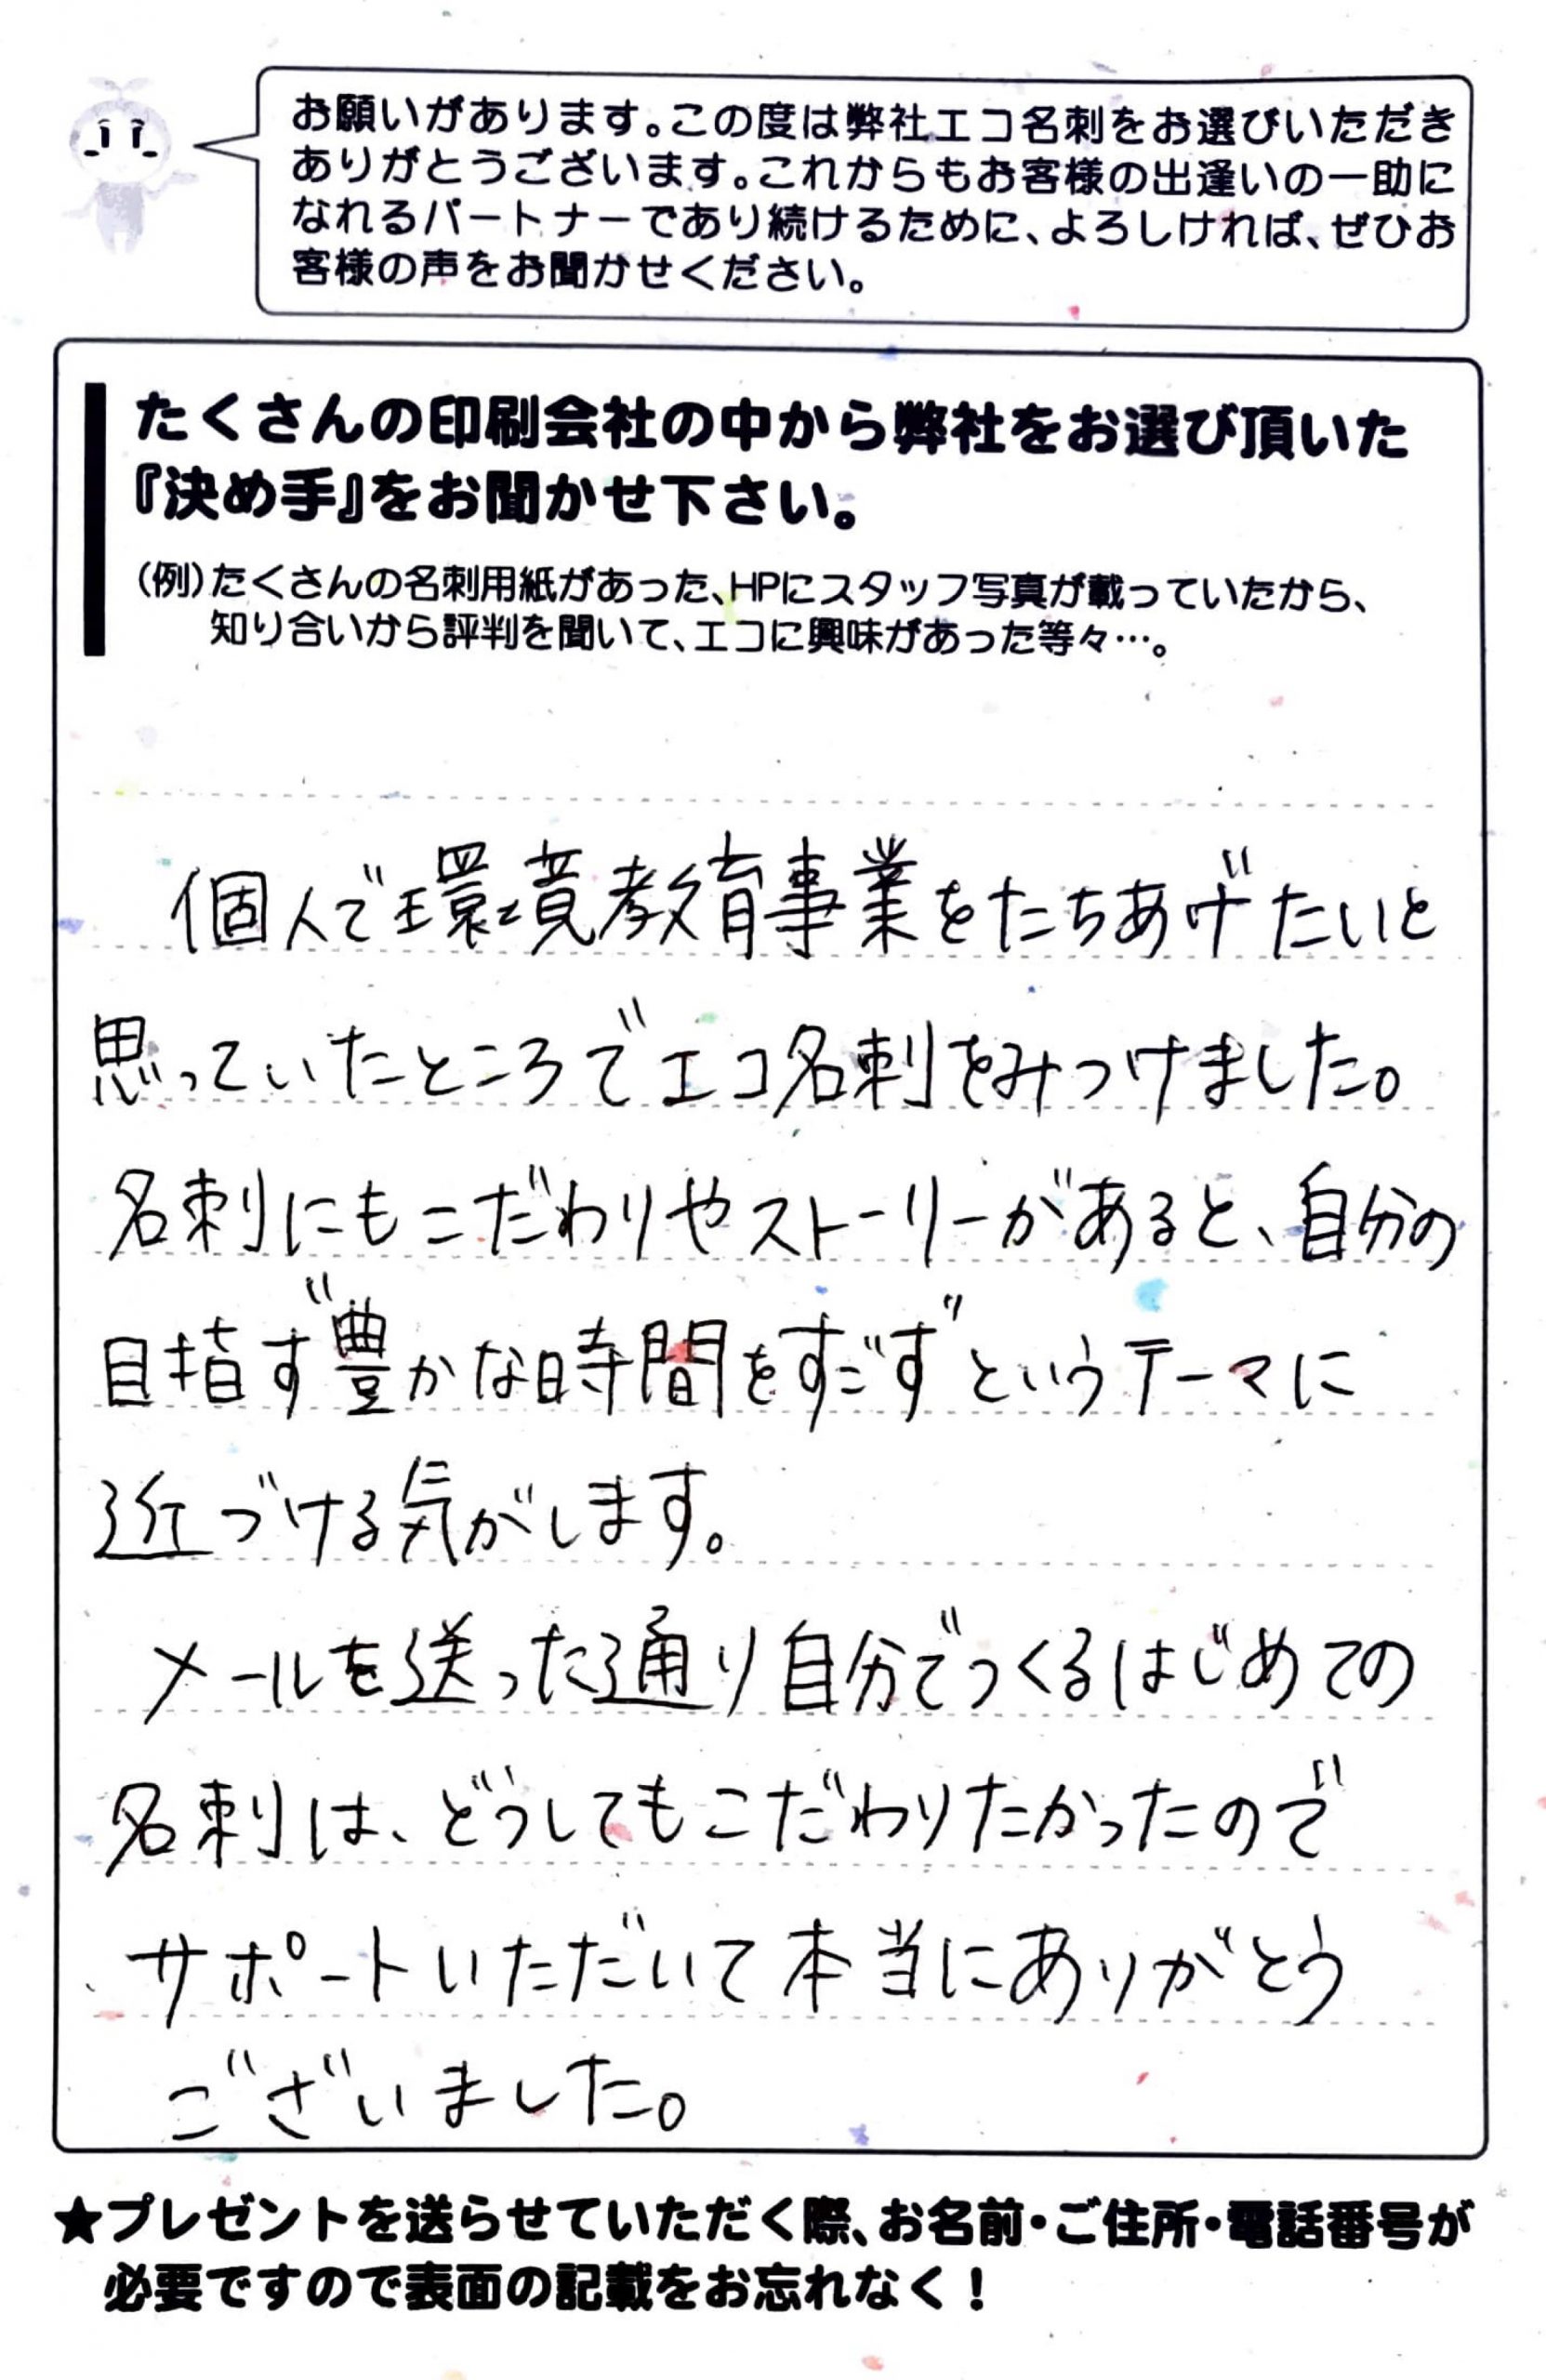 お願いがあります。この度は弊社エコ名刺をお選びいただき
ありがとうございます。これからもお客様の出逢いの一助に
なれるパートナーであり続けるために、よろしければ、ぜひお
客様の声をお聞かせください。
たくさんの印刷会社の中から弊社をお選び頂いた
『決め手』をお聞かせ下さい。
(例)たくさんの名刺用紙があった、HPにスタッフ写真が載っていたから、
知り合いから評判を聞いて、エコに興味があった等々…。
個人で環境教育事業をたちあげたいと
思っていたところでエコ名刺をみつけました。
名刺にもこだわりやストーリーがあると、自分の
目指す"豊かな時間をすごす"というテーマに
近づける気がします。
メールを送った通り自分でつくるはじめての
名刺は、どうしてもこだわりたかったので
サポートいただいて本当にありがとう
ございました。
★プレゼントを送らせていただく際、お名前・ご住所・電話番号が
必要ですので表面の記載をお忘れなく!